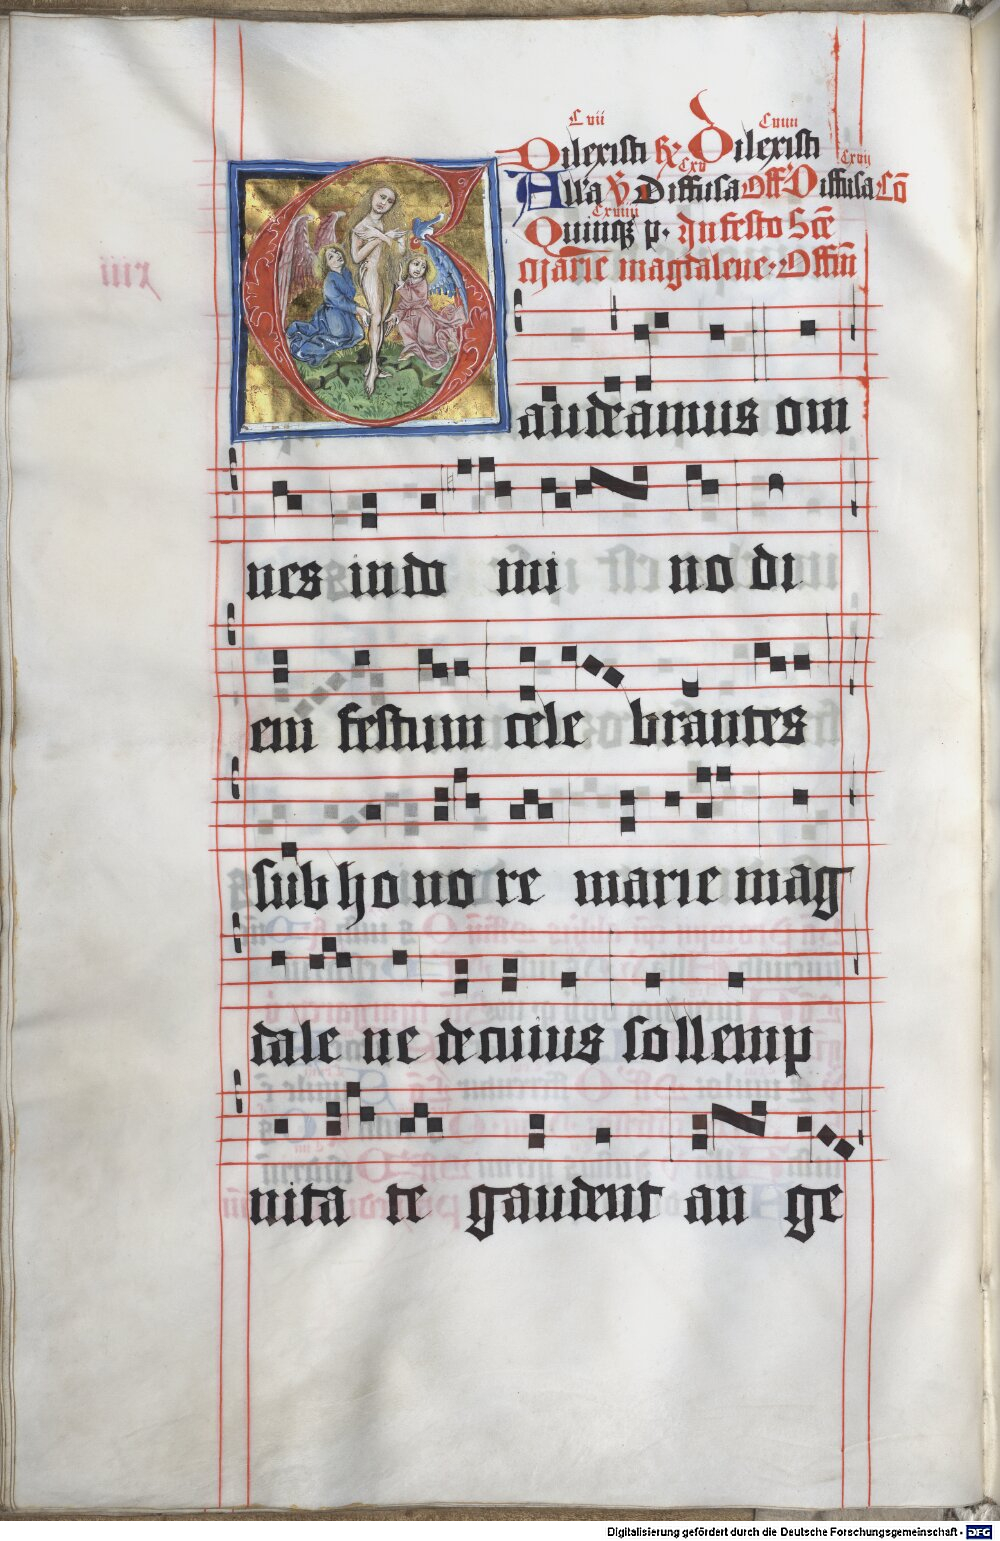 Cvii Cviiii
Dilexisti R Dilexisti
Cxv Cxvij
Alla V Diffusa Off Diffusa Cō
Cxviiii
Quinqz p. In festo Scē
Marie magdalene. Offiū
Gaudeamus om
nes in do mi no di
em festum cele brantes
sub ho no re marie mag
dale ne de cuius sollemp
nita te gaudent an ge
Digitalisierung gefördert durch die Deutsche Forschungsgemeinschaft - DFG